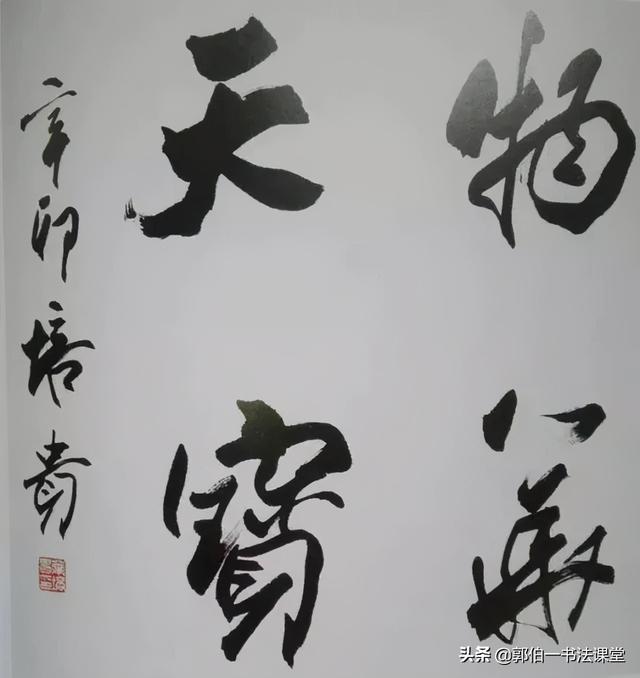 物華
天寶
辛卯培貴
头条 @郭伯一书法课堂